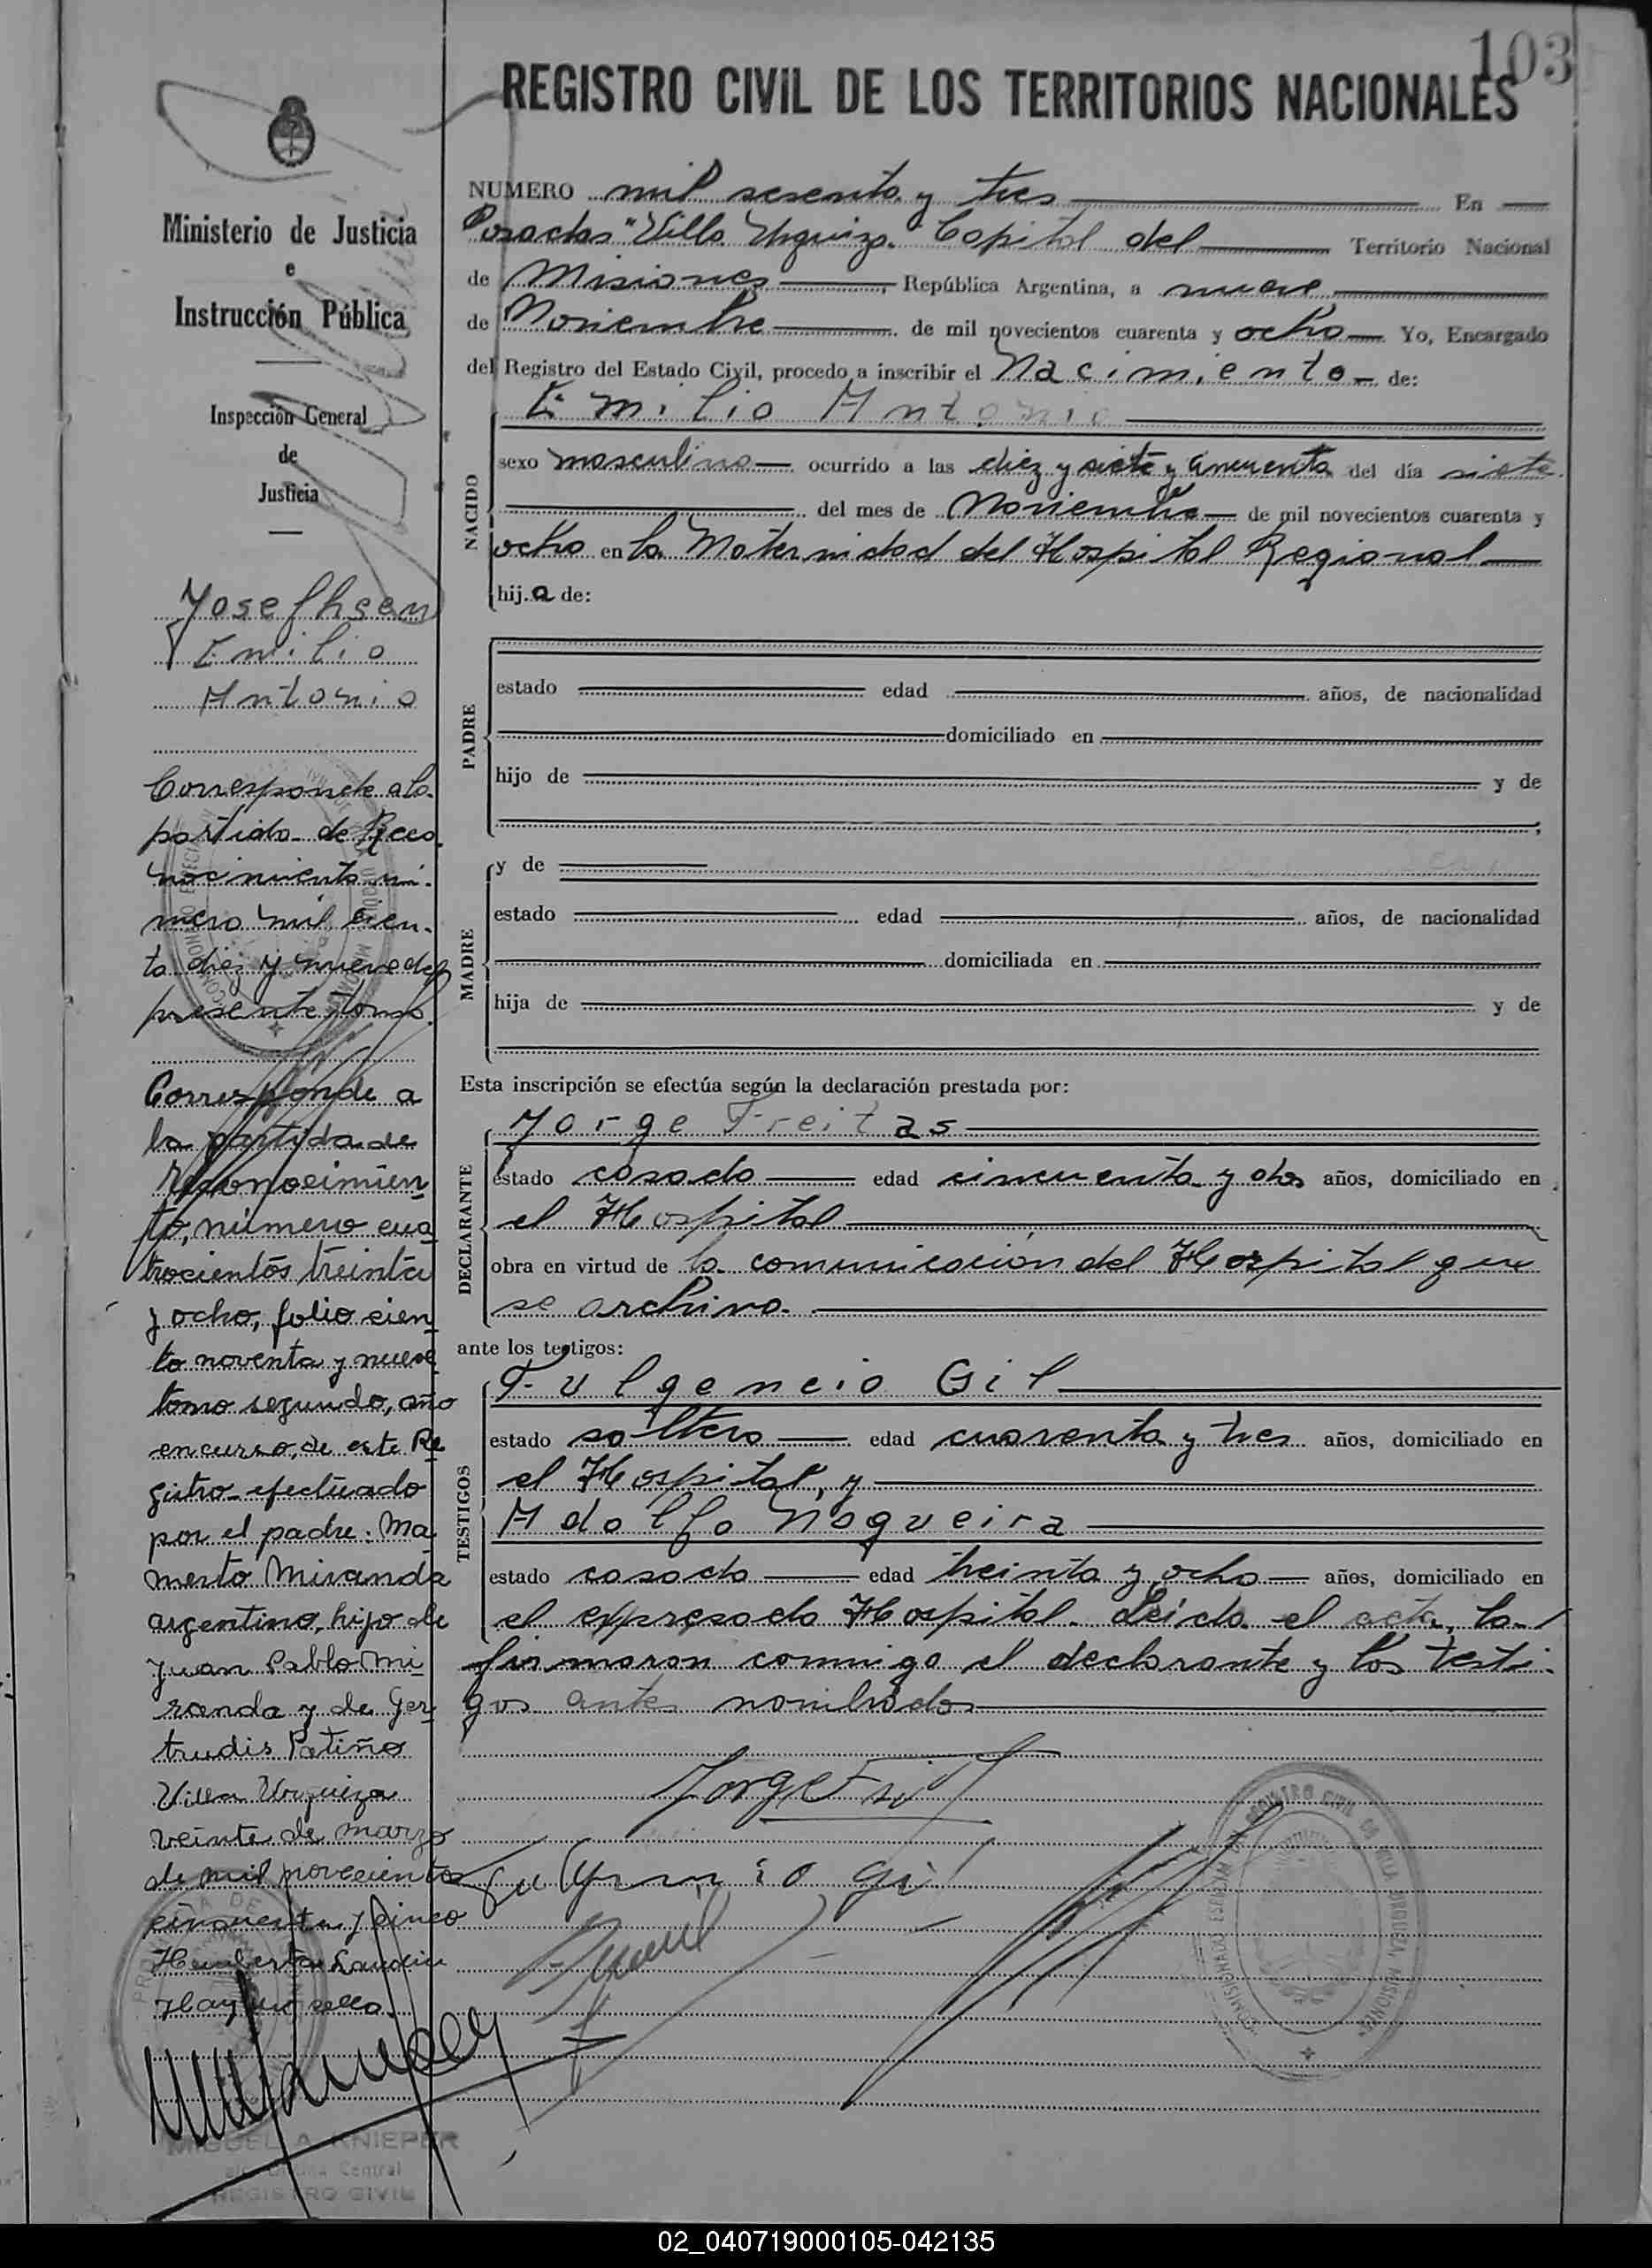 103
REGISTRO CIVIL DE LOS TERRITORIOS NACIONALES
Ministerio de Justicia
e
Instrucción Pública
Inspección General
de
Justicia
NUMERO mil sesenta y tres En
Posadas "Villa Urquiza" Capital del Territorio Nacional
de Misiones, República Argentina, a nueve
de Noviembre de mil novecientos cuarenta y ocho Yo, Encargado
del Registro del Estado Civil, procedo a inscribir el Nacimiento de:
Emilio Antonio
NACIDO
sexo masculino ocurrido a las diez y siete y cincuenta del día siete
del mes de Noviembre de mil novecientos cuarenta y
ocho en la Maternidad del Hospital Regional
hijo de:
PADRE
estado edad años, de nacionalidad
domiciliado en
hijo de y de
MADRE
y de
estado edad años, de nacionalidad
domiciliada en
hija de y de
Esta inscripción se efectúa según la declaración prestada por:
DECLARANTE
Jorge Freitas
estado casado edad cincuenta y dos años, domiciliado en
el Hospital
obra en virtud de la comunicación del Hospital que
se archiva.
ante los testigos:
TESTIGOS
Fulgencio Gil
estado soltero edad cuarenta y tres años, domiciliado en
el Hospital, y
Adolfo Nogueira
estado casado edad treinta y ocho años, domiciliado en
el expresado Hospital. Leída el acta, la
firmaron conmigo el declarante y los testi-
gos antes nombrados
Josefhsen
Emilio
Antonio
Corresponde a la
partida de Reco-
nocimiento nú-
mero mil cien-
to diez y nueve del
presente tomo.
Corresponde a
la partida de
Reconocimien
to, número cua
trocientos treinta
y ocho, folio cien
to noventa y nueve
tomo segundo, año
en curso, de este Re
gistro efectuado
por el padre: Ma
merto Miranda
argentino, hijo de
Juan Pablo Mi
randa y de Ger
trudis Patiño
Villa Urquiza
veinte de marzo
de mil novecientos
cincuenta y cinco
Hay un sello.
MIGUEL A. KNIEPER
Oficina Central
REGISTRO CIVIL
02_040719000105-042135